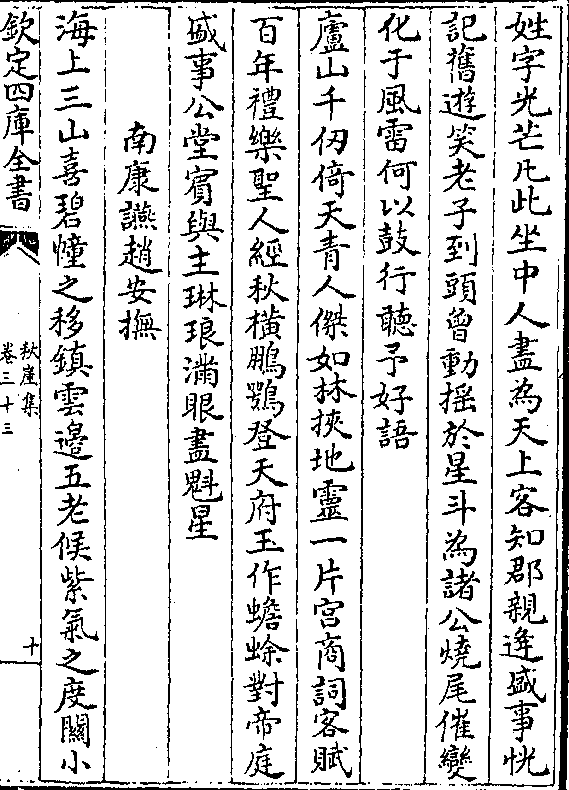 姓字光芒凡此坐中人盡為天上客知郡親逢盛事恍
記舊遊笑老子到頭曾動揺於星斗為諸公燒尾催變
化于風雷何以鼓行聽予好語
廬山千仞倚天青人傑如林挾地靈一片宫商詞客賦
百年禮樂聖人經秋横鵬鶚登天府玉作蟾蜍對帝庭
盛事公堂賓與主琳琅滿眼盡魁星
南康讌趙安撫
海上三山喜碧幢之移鎮雲邉五老候紫氣之度關小
欽定四庫全書
秋崖集
卷三十三
十